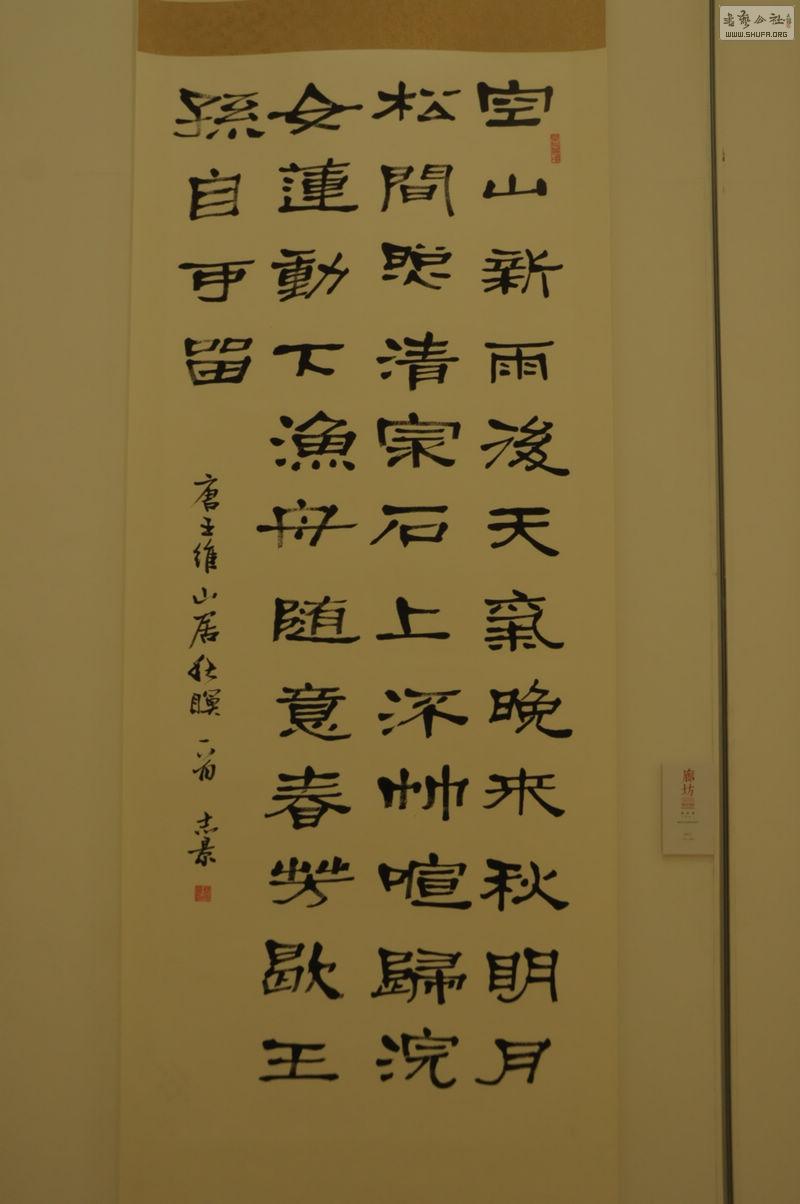 空山新雨後天氣晚来秋明月
松間照清泉石上流竹喧歸浣
女蓮動下漁舟随意春芳歇王
孫自可留
唐王維山居秋暝一首 志景
廊坊
書藝公社
WWW.SHUFA.ORG